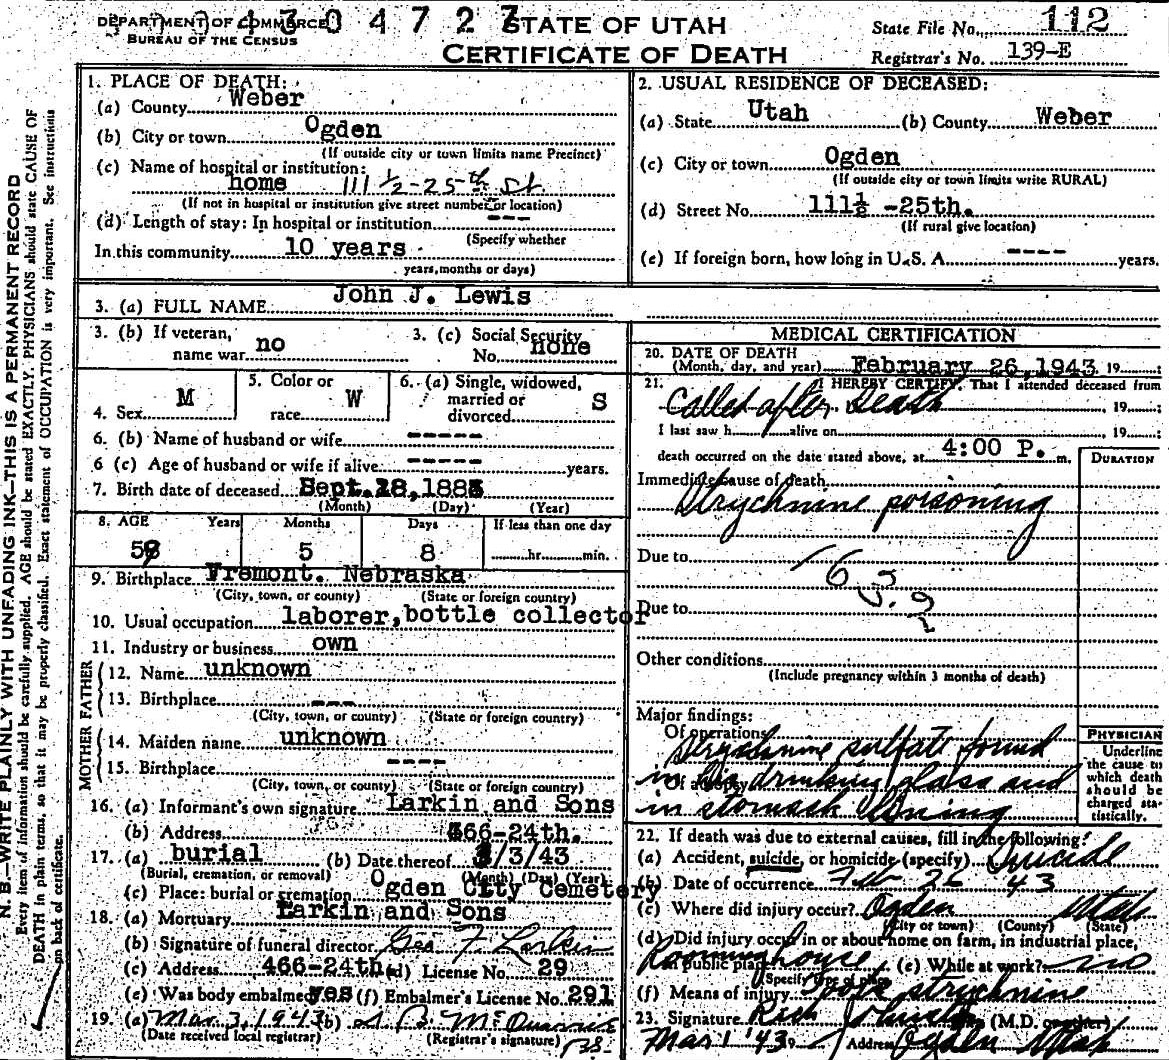 DEPARTMENT OF COMMERCE
BUREAU OF THE CENSUS
4304727
STATE OF UTAH
CERTIFICATE OF DEATH
State File No. 112
Registrar's No. 139-E
N. B.—WRITE PLAINLY WITH UNFADING INK—THIS IS A PERMANENT RECORD
Every item of information should be carefully supplied. AGE should be stated EXACTLY. PHYSICIANS should state CAUSE OF
DEATH in plain terms, so that it may be properly classified. Exact statement of OCCUPATION is very important. See instructions
on back of certificate.
1. PLACE OF DEATH:
(a) County Weber
(b) City or town Ogden
(If outside city or town limits name Precinct)
(c) Name of hospital or institution:
home 111 1/2-25th St
(If not in hospital or institution give street number or location)
(d) Length of stay: In hospital or institution ---
(Specify whether
In this community 10 years
years, months or days)
2. USUAL RESIDENCE OF DECEASED:
(a) State Utah (b) County Weber
(c) City or town Ogden
(If outside city or town limits write RURAL)
(d) Street No. 111½ -25th.
(If rural give location)
(e) If foreign born, how long in U.S. A. ---- years.
3. (a) FULL NAME John J. Lewis
3. (b) If veteran, name war no
3. (c) Social Security No. none
4. Sex M
5. Color or race W
6. (a) Single, widowed, married or divorced S
6. (b) Name of husband or wife -----
6 (c) Age of husband or wife if alive ----- years.
7. Birth date of deceased Sept. 18, 188
(Month) (Day) (Year)
8. AGE Years Months Days If less than one day
5 5 8 hr. min.
9. Birthplace Fremont. Nebraska
(City, town, or county) (State or foreign country)
10. Usual occupation laborer, bottle collector
11. Industry or business own
FATHER
12. Name unknown
13. Birthplace ---
(City, town, or county) (State or foreign country)
MOTHER
14. Maiden name unknown
15. Birthplace ----
(City, town, or county) (State or foreign country)
16. (a) Informant's own signature Larkin and Sons
(b) Address 466-24th.
17. (a) burial (b) Date thereof 3/3/43
(Burial, cremation, or removal) (Month) (Day) (Year)
(c) Place: burial or cremation Ogden City Cemetery
18. (a) Mortuary Larkin and Sons
(b) Signature of funeral director Geo F Larkin
(c) Address 466-24th. (d) License No. 29
(e) Was body embalmed yes (f) Embalmer's License No. 291
19. (a) Mar 3, 1943 (b)
(Date received local registrar) (Registrar's signature)
MEDICAL CERTIFICATION
20. DATE OF DEATH
(Month, day, and year) February 26, 1943 19
21. I HEREBY CERTIFY, That I attended deceased from
Called after Death , 19 ;
I last saw h alive on , 19 ;
death occurred on the date stated above, at 4:00 P. m.
DURATION
Immediate cause of death
Strychnine poisoning
Due to
163
Due to
Other conditions
(Include pregnancy within 3 months of death)
Major findings:
Of operations
Strychnine sulfate found
Of autopsy
in his drinking glass and
in stomach lining
PHYSICIAN
Underline
the cause to
which death
should be
charged sta-
tistically.
22. If death was due to external causes, fill in the following:
(a) Accident, suicide, or homicide (specify) Suicide
(b) Date of occurrence Feb 26 43
(c) Where did injury occur? Ogden Utah
(City or town) (County) (State)
(d) Did injury occur in or about home on farm, in industrial place,
in public place? Rooming house (e) While at work? no
(Specify
(f) Means of injury strychnine
23. Signature Rich Johnston (M.D. or other)
Mar 1 '43 Address Ogden Utah